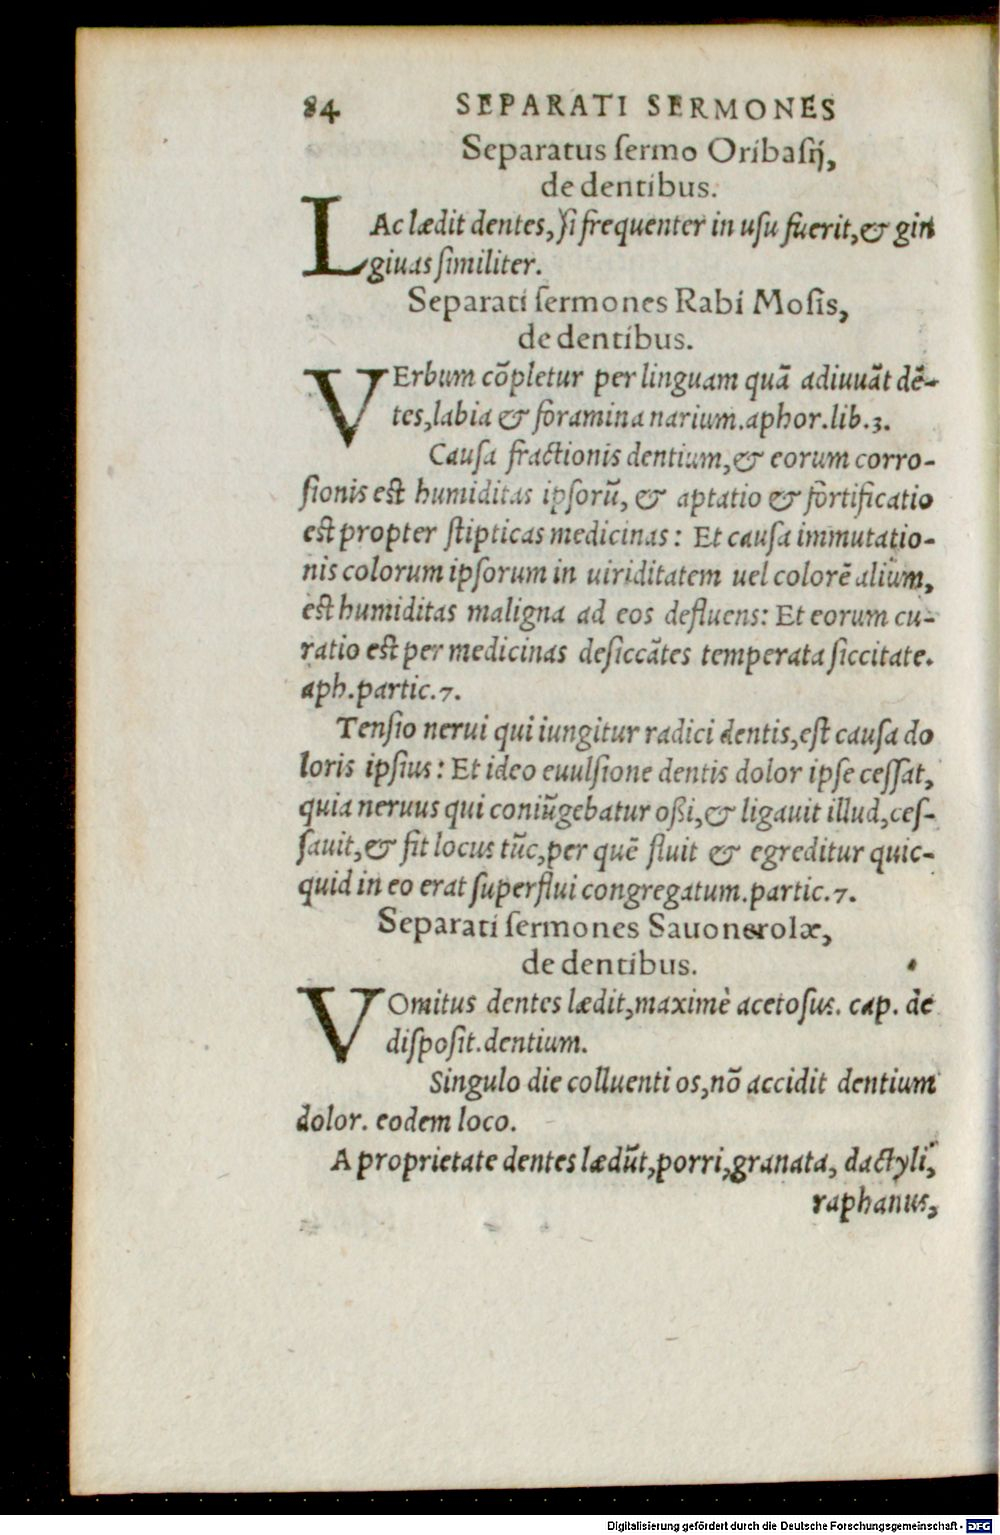 84 SEPARATI SERMONES
Separatus ſermo Oribaſij,
de dentibus.
LAc lædit dentes, ſi frequenter in uſu fuerit, & gin
giuas ſimiliter.
Separati ſermones Rabi Moſis,
de dentibus.
VErbum cõpletur per linguam quã adiuuãt dẽ-
tes, labia & foramina narium. aphor. lib. 3.
Cauſa fractionis dentium, & eorum corro-
ſionis est humiditas ipſorũ, & aptatio & fortificatio
est propter ſtipticas medicinas: Et cauſa immutatio-
nis colorum ipſorum in uiriditatem uel colorẽ alium,
est humiditas maligna ad eos defluens: Et eorum cu-
ratio est per medicinas deſiccãtes temperata ſiccitate.
aph. partic. 7.
Tenſio nerui qui iungitur radici dentis, eſt cauſa do
loris ipſius: Et ideo euulſione dentis dolor ipſe ceſſat,
quia neruus qui coniũgebatur oßi, & ligauit illud, ceſ-
ſauit, & fit locus tũc, per quẽ fluit & egreditur quic-
quid in eo erat ſuperflui congregatum. partic. 7.
Separati ſermones Sauonerolæ,
de dentibus.
VOmitus dentes lædit, maximè acetoſus. cap. de
diſpoſit. dentium.
Singulo die colluenti os, nõ accidit dentium
dolor. eodem loco.
A proprietate dentes lædũt, porri, granata, dactyli,
raphanus,
Digitalisierung gefördert durch die Deutsche Forschungsgemeinschaft - DFG